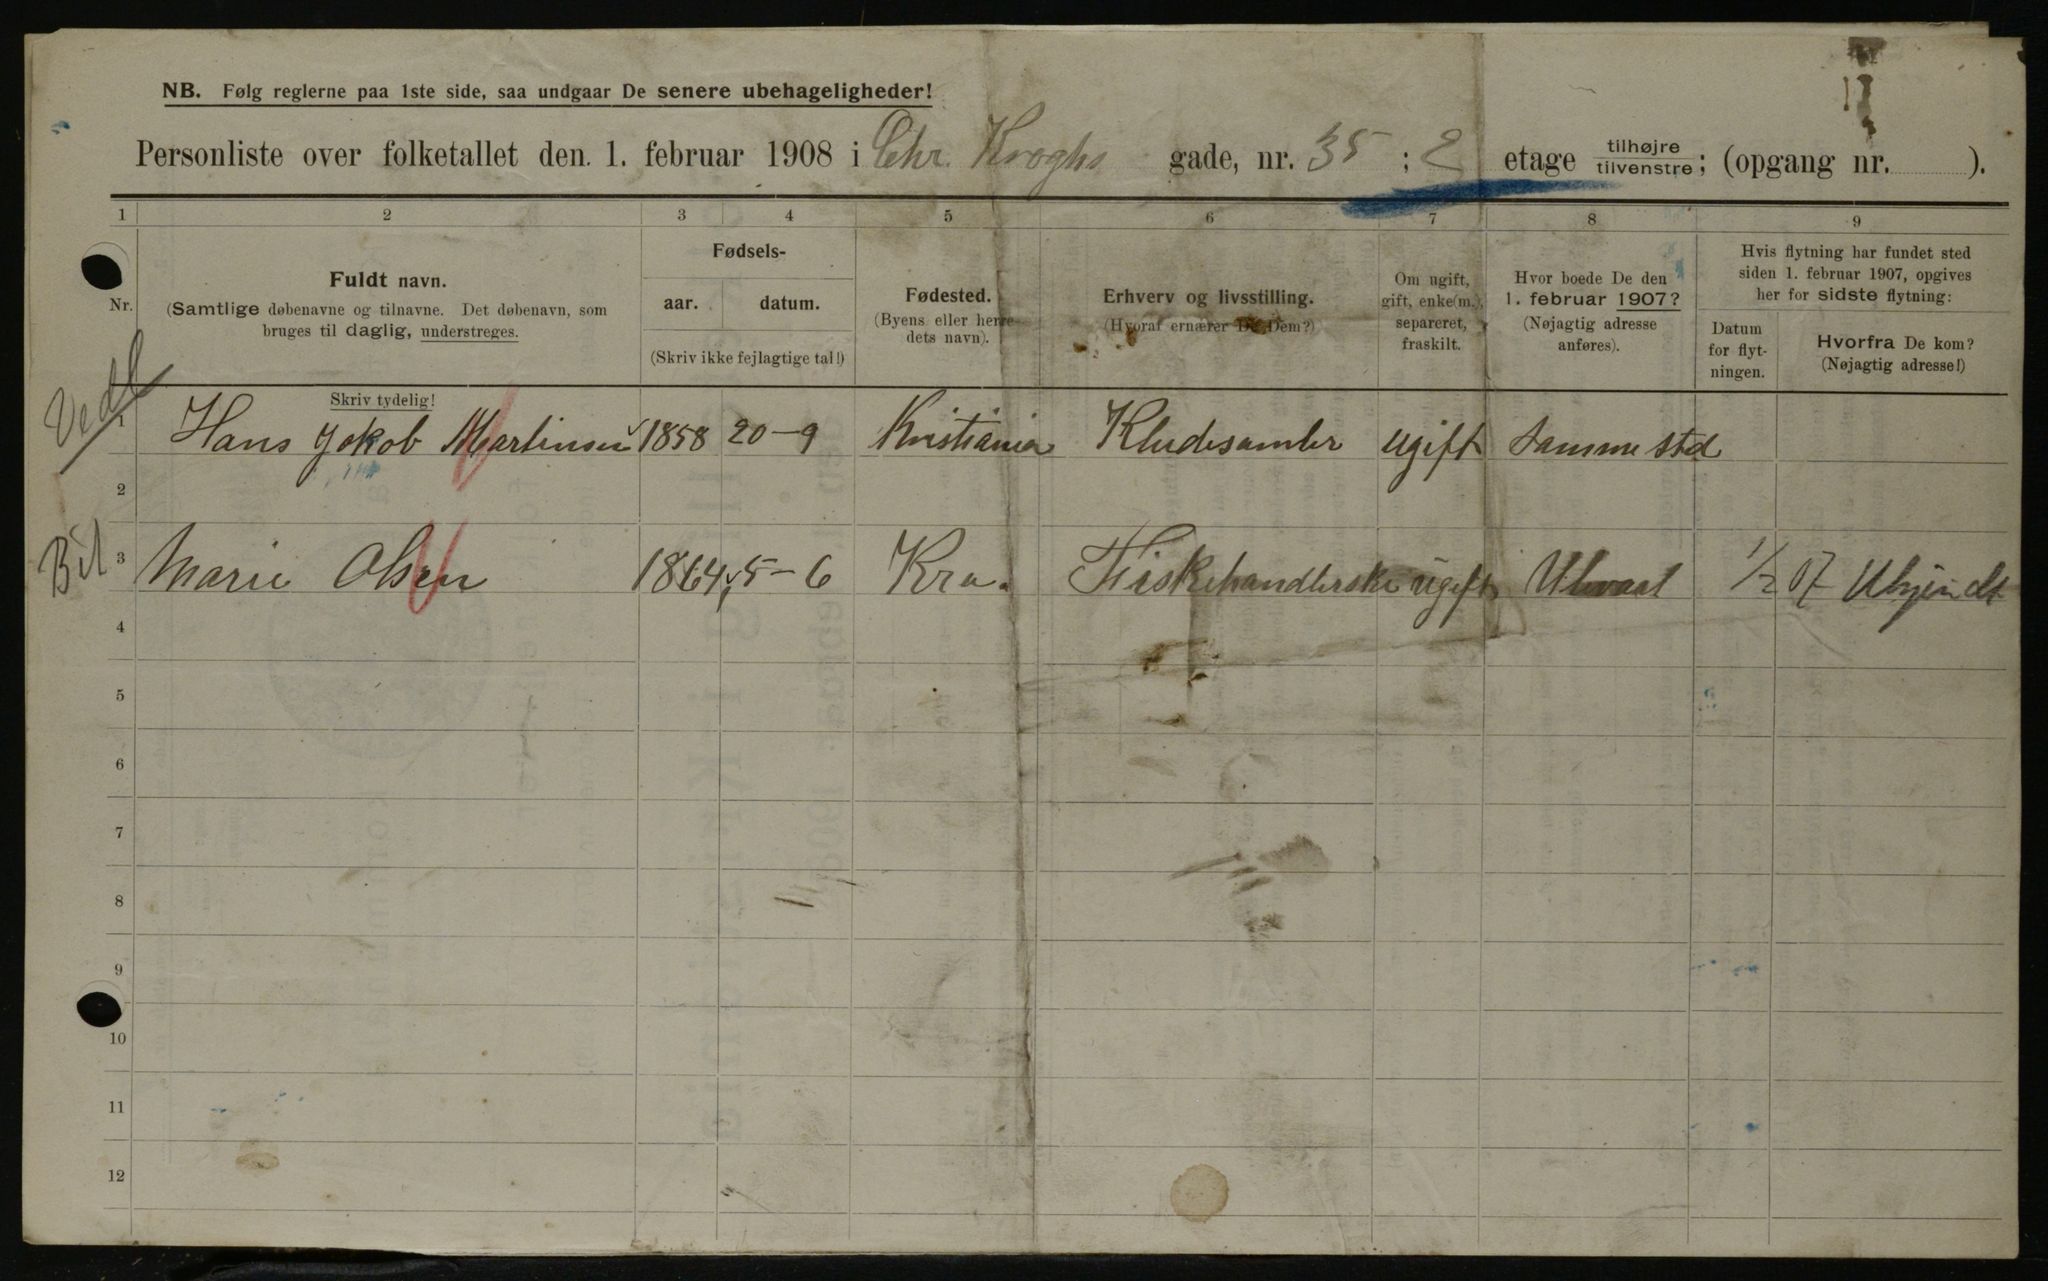 NB. Følg reglerne paa 1ste side, saa undgaar De senere ubehageligheder!
Personliste over folketallet den 1. februar 1908 i Chr. Kroghs gade, nr. 35 ; 2 etage tilhøjre tilvenstre; (opgang nr. ).
1 2 3 4 5 6 7 8 9
Nr.
Fuldt navn.
(Samtlige døbenavne og tilnavne. Det døbenavn, som
bruges til daglig, understreges.
Skriv tydelig!
Fødsels-
aar. datum.
(Skriv ikke fejlagtige tal!)
Fødested.
(Byens eller herre-
dets navn).
Erhverv og livsstilling.
(Hvoraf ernærer De Dem?)
Om ugift,
gift, enke(m.),
separeret,
fraskilt.
Hvor boede De den
1. februar 1907?
(Nøjagtig adresse
anføres).
Hvis flytning har fundet sted
siden 1. februar 1907, opgives
her for sidste flytning:
Datum
for flyt-
ningen.
Hvorfra De kom?
(Nøjagtig adresse!)
1 Hans Jakob Martinsen 1858 20-9 Kristiania Kludesamler ugift Samme sted
2
Bil 3 Marie Olsen 1864 5-6 Kra. Fiskehandlerske ugift 1/2 07
4
5
6
7
8
9
10
11
12